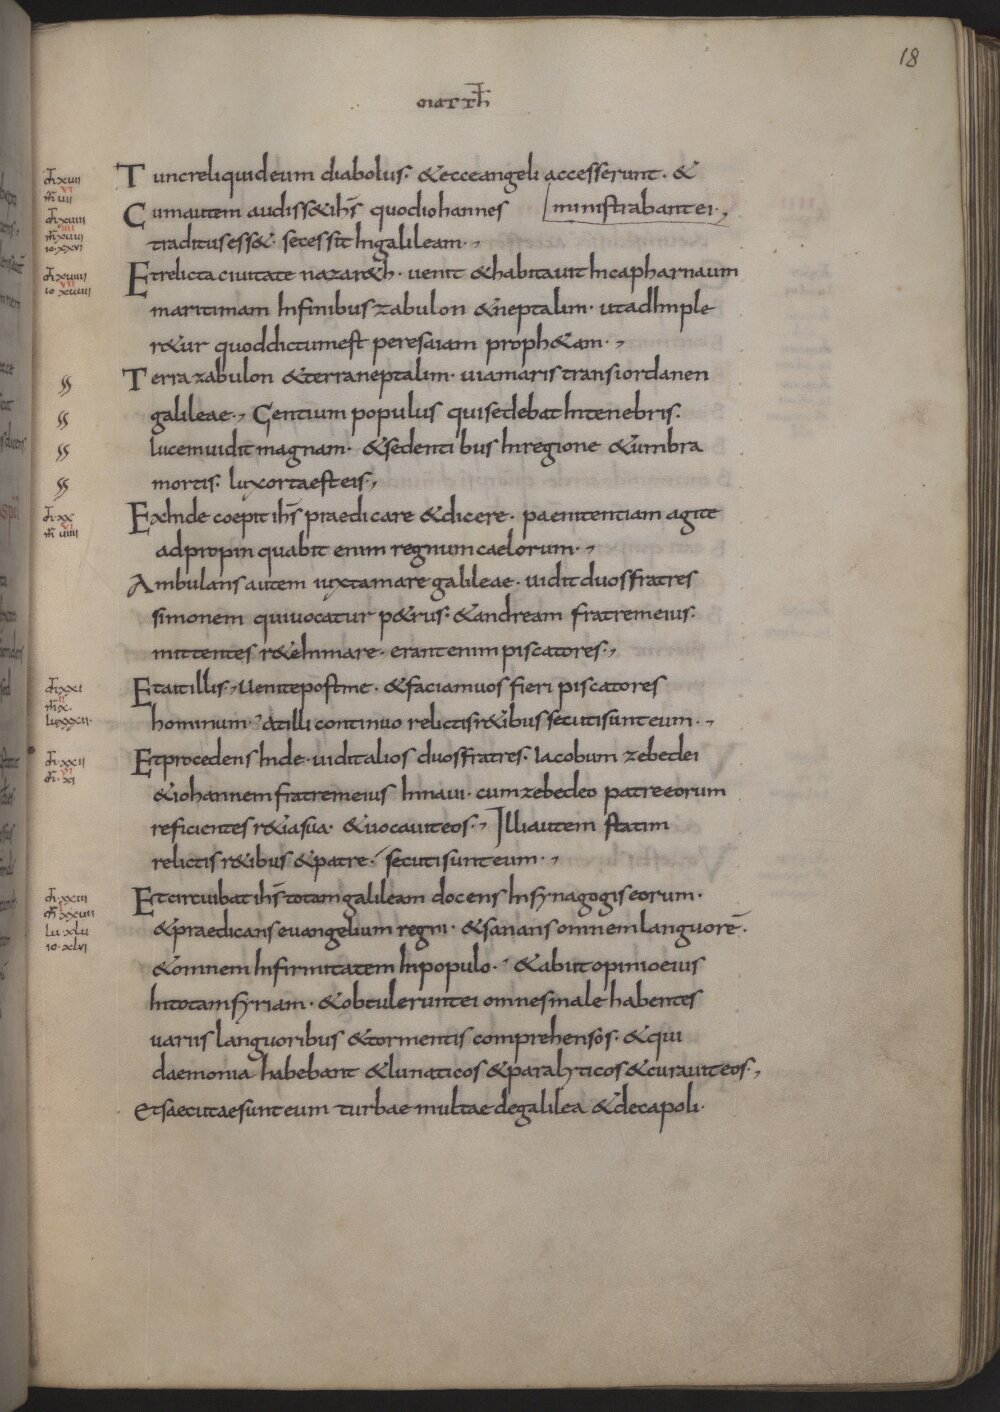 18
matth
Tuncreliquideum diabolus. &ecceangeli accesserunt. &
Cumautem audiss&ihs quodiohannes ministrabantei.,
traditusess&. secessit Ingalileam.,
Etrelicta ciuitate nazar&h. uenit &habitauit Incapharnaum
maritimam Infinibus zabulon &neptalim. utadImple
r&ur quoddictumest peresaiam proph&am.,
Terra zabulon &terraneptalim. uiamaris transiordanen
galileae., Gentium populus quisedebat Intenebris.
lucemuidit magnam. &sedentibus Inregione &umbra
mortis. luxortaesteis.,
ExInde coepit ihs praedicare &dicere. paenitentiam agite
adpropinquabit enim regnumcaelorum.,
Ambulans autem iuxtamare galileae. uidit duosfratres
simonem quiuocatur p&rus. &andream fratremeius.
mittentes r&eInmare. erantenim piscatores.,
Etaitillis., Uenitepostme. &faciamuos fieri piscatores
hominum. atilli continuo relictisr&ibus secutisunteum.,
Etprocedens Inde. uiditalios duosfratres. Iacobum zebedei
&iohannem fratremeius Innaui. cumzebedeo patreeorum
reficientes r&iasua. &uocauiteos., Illiautem statim
relictis r&ibus &patre. secutisunteum.,
Etcircuibat ihs totamgalileam docens Insynagogiseorum.
&praedicans euangelium regni. &sanans omnemlanguorē.
&omnem Infirmitatem Inpopulo. &abiitopinioeius
Intotamsyriam. &obtuleruntei omnesmale habentes
uariis languoribus &tormentis comprehensos. &qui
daemonia habebant &lunaticos &paralyticos &curauiteos.,
Etsaecutaesunteum turbae multae degalilea &decapoli.